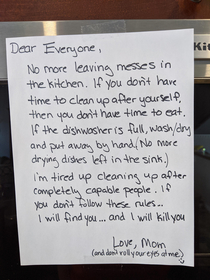 Dear Everyone,
No more leaving messes in
the kitchen. If you don't have
time to clean up after yourself,
then you don't have time to eat.
If the dishwasher is full, wash/dry
and put away by hand. (No more
drying dishes left in the sink.)
i'm tired up cleaning up after
completely capable people. if
you don't follow these rules...
I will find you... and I will kill you
Love, Mom
(and don't roll your eyes at me.)